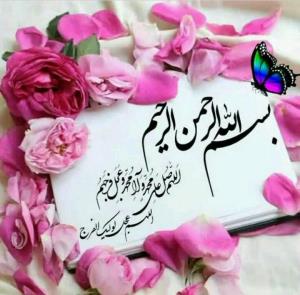 بسم الله الرحمن الرحیم
اللهم صل علی محمد و آل محمد و عجل فرجهم
اللهم عجل لولیک الفرج